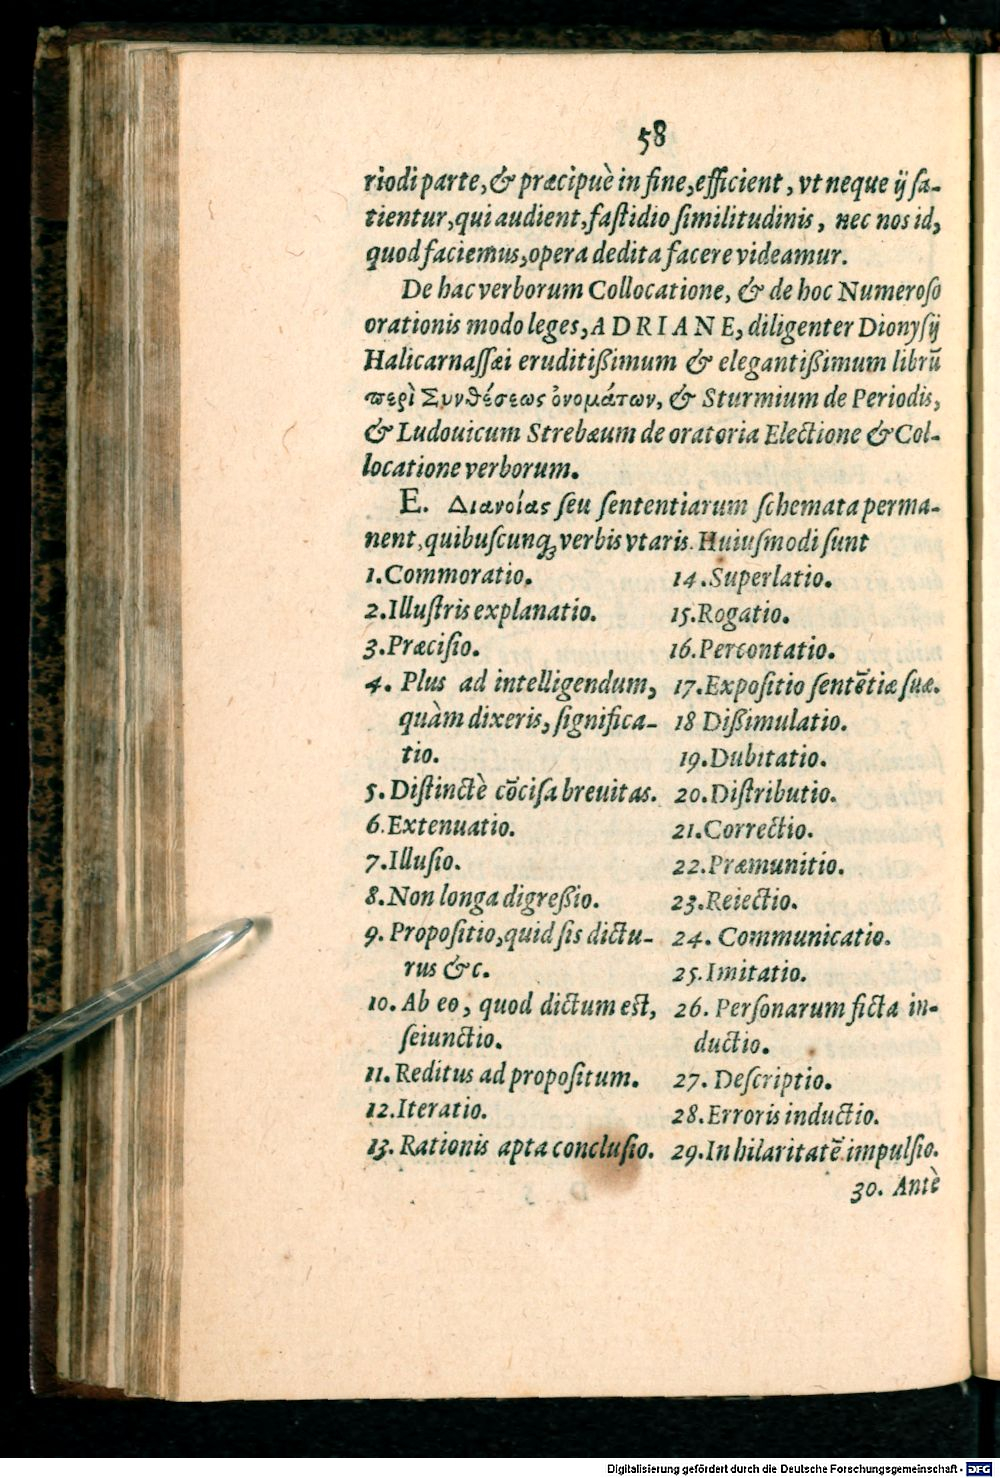 58
riodi parte, & præcipuè in fine, efficient, vt neque ij sa-
tientur, qui audient, fastidio similitudinis, nec nos id,
quod faciemus, opera dedita facere videamur.
De hac verborum Collocatione, & de hoc Numeroso
orationis modo leges, ADRIANE, diligenter Dionysij
Halicarnassæi eruditißimum & elegantißimum librū
περὶ Συνθέσεως ὀνομάτων, & Sturmium de Periodis,
& Ludouicum Strebæum de oratoria Electione & Col-
locatione verborum.
E. Διανοίας seu sententiarum schemata perma-
nent, quibuscunq; verbis vtaris. Huiusmodi sunt
1. Commoratio.
2. Illustris explanatio.
3. Præcisio.
4. Plus ad intelligendum,
quàm dixeris, significa-
tio.
5. Distinctè cōcisa breuitas.
6. Extenuatio.
7. Illusio.
8. Non longa digreßio.
9. Propositio, quid sis dictu-
rus & c.
10. Ab eo, quod dictum est,
seiunctio.
11. Reditus ad propositum.
12. Iteratio.
13. Rationis apta conclusio.
14. Superlatio.
15. Rogatio.
16. Percontatio.
17. Expositio sentētiæ suæ.
18 Dißimulatio.
19. Dubitatio.
20. Distributio.
21. Correctio.
22. Præmunitio.
23. Reiectio.
24. Communicatio.
25. Imitatio.
26. Personarum ficta in-
ductio.
27. Descriptio.
28. Erroris inductio.
29. In hilaritatē impulsio.
30. Antè
Digitalisierung gefördert durch die Deutsche Forschungsgemeinschaft - DFG